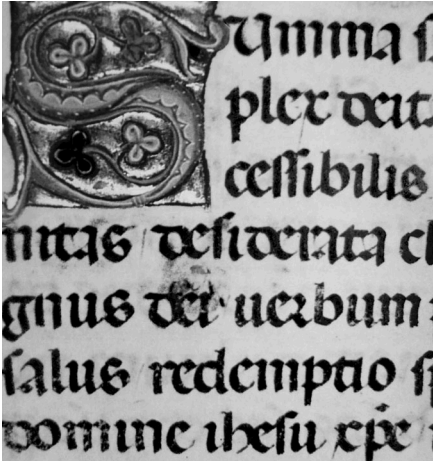 Summa s
plex deit
cessibilis
nitas desiderata cl
gnus dei uerbum
salus redemptio sp
domine ihesu xpe